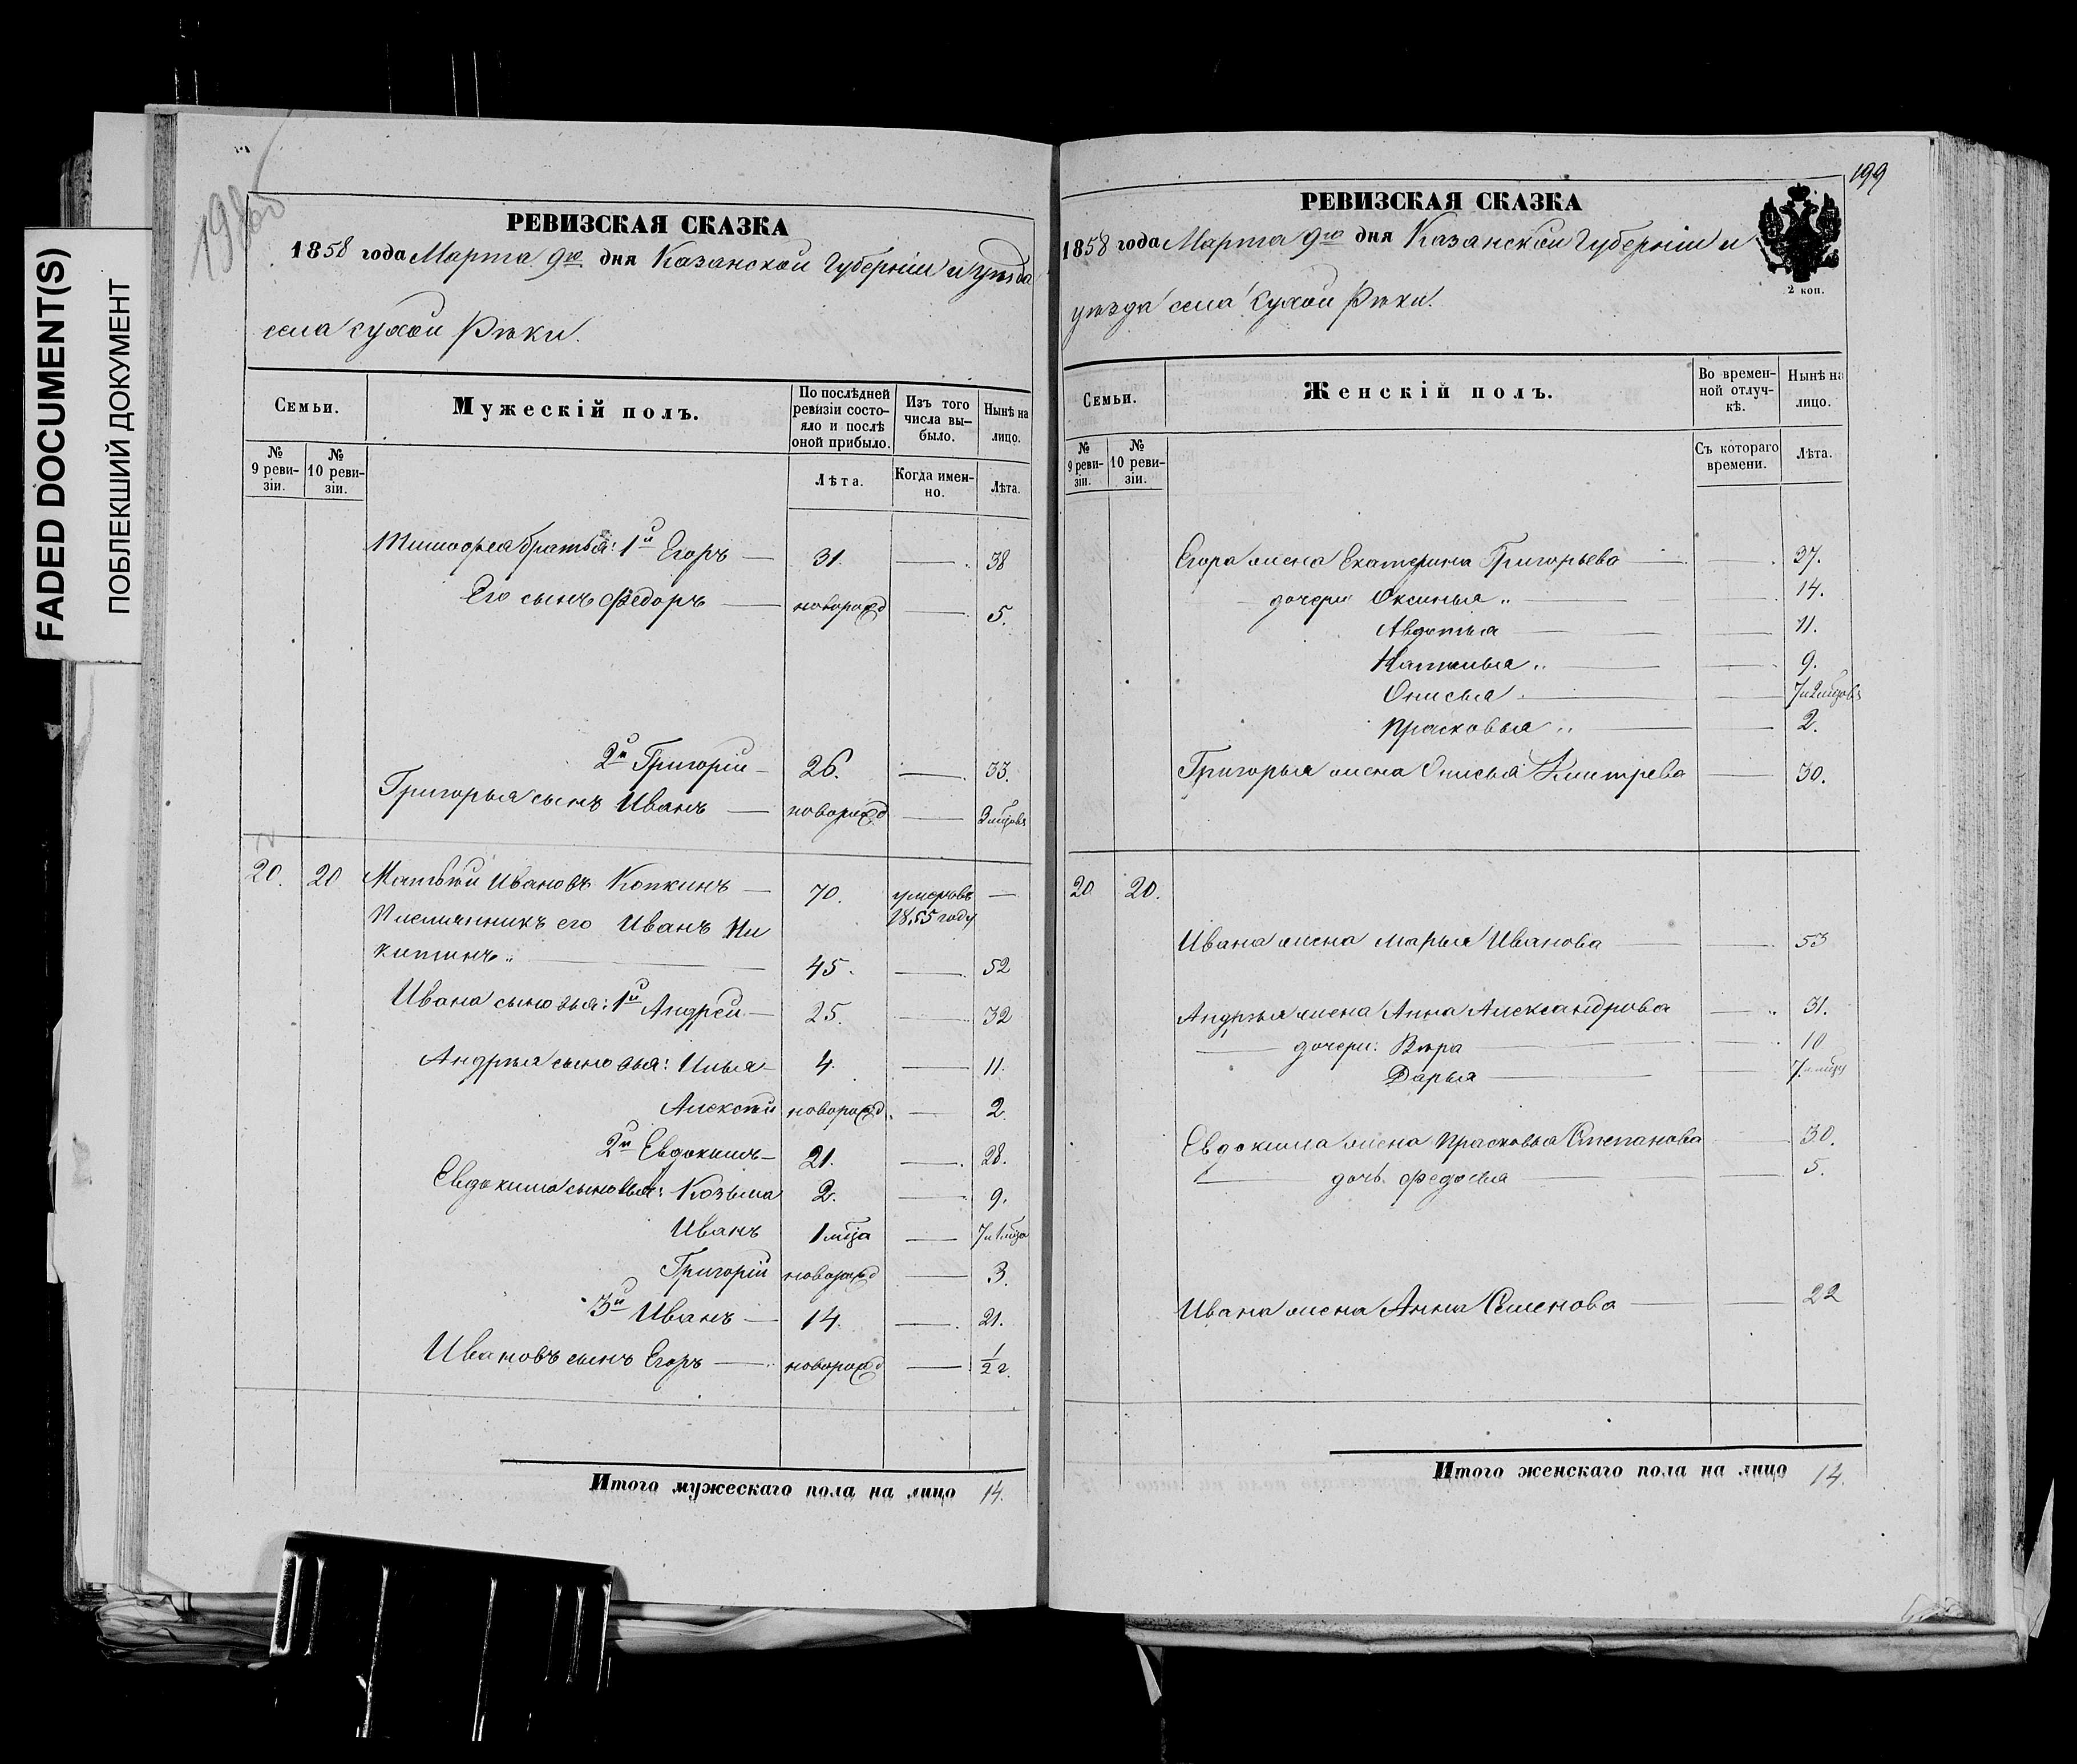 FADED DOCUMENT(S)
ПОБЛЕКШИЙ ДОКУМЕНТ
РЕВИЗСКАЯ СКАЗКА
1858 года Марта 9го дня Казанской Губерніи и уѣзда
села Сухой Рѣки.
Семьи.
Мужескій полъ.
По послѣдней ревизіи состояло и послѣ оной прибыло.
Изъ того числа выбыло.
Нынѣ на лицо.
№ 9 ревизіи.
№ 10 ревизіи.
Лѣта.
Когда именно.
Лѣта.
Тимофея братья: 1й Егоръ — 31. — 38
Его сынъ Федоръ — новорожд — 5.
2й Григорій — 26. — 33.
Григорья сынъ Иванъ — новорожд — 3 мѣсов
20. 20 Матвѣй Ивановъ Копкинъ — 70. умеръ въ 1855 году —
Племянникъ его Иванъ Ни
китинъ „ — 45. — 52
Ивана сыновья: 1й Андрей — 25. — 32
Андрѣя сыновья: Илья — 4. — 11.
Алексѣй новорожд. — 2.
2й Евдокимъ — 21. — 28.
Евдокима сыновья: Козьма 2. — 9.
Иванъ 1 мѣца — 7 и 1 мѣца
Григорій новорожд — 3.
3й Иванъ — 14. — 21.
Ивановъ сынъ Егоръ — новорожд — 1/2 г.
Итого мужескаго пола на лицо 14.
199
РЕВИЗСКАЯ СКАЗКА
2 коп.
1858 года Марта 9го дня Казанской Губерніи и
уѣзда села Сухой Рѣки.
Семьи.
Женскій полъ.
Во временной отлучкѣ.
Нынѣ на лицо.
№ 9 ревизіи.
№ 10 ревизіи.
Съ котораго времени.
Лѣта.
Егора жена Екатерина Григорьева — — 37.
дочери Оксинья „ — — 14.
Авдотья — — 11.
Наталья „ — — 9.
Онисья — — 7 и 2 мѣсов
Прасковья „ — — 2.
Григорья жена Онисья Дмитрева — 30.
20 20.
Ивана жена Марья Иванова — — 53
Андрѣя жена Анна Александрова — 31.
— дочери: Вѣра — — 10
Дарья — — 7
Евдокима жена Прасковья Степанова — 30.
— дочь Федосья — — 5.
Ивана жена Анна Семенова — — 22
Итого женскаго пола на лицо 14.